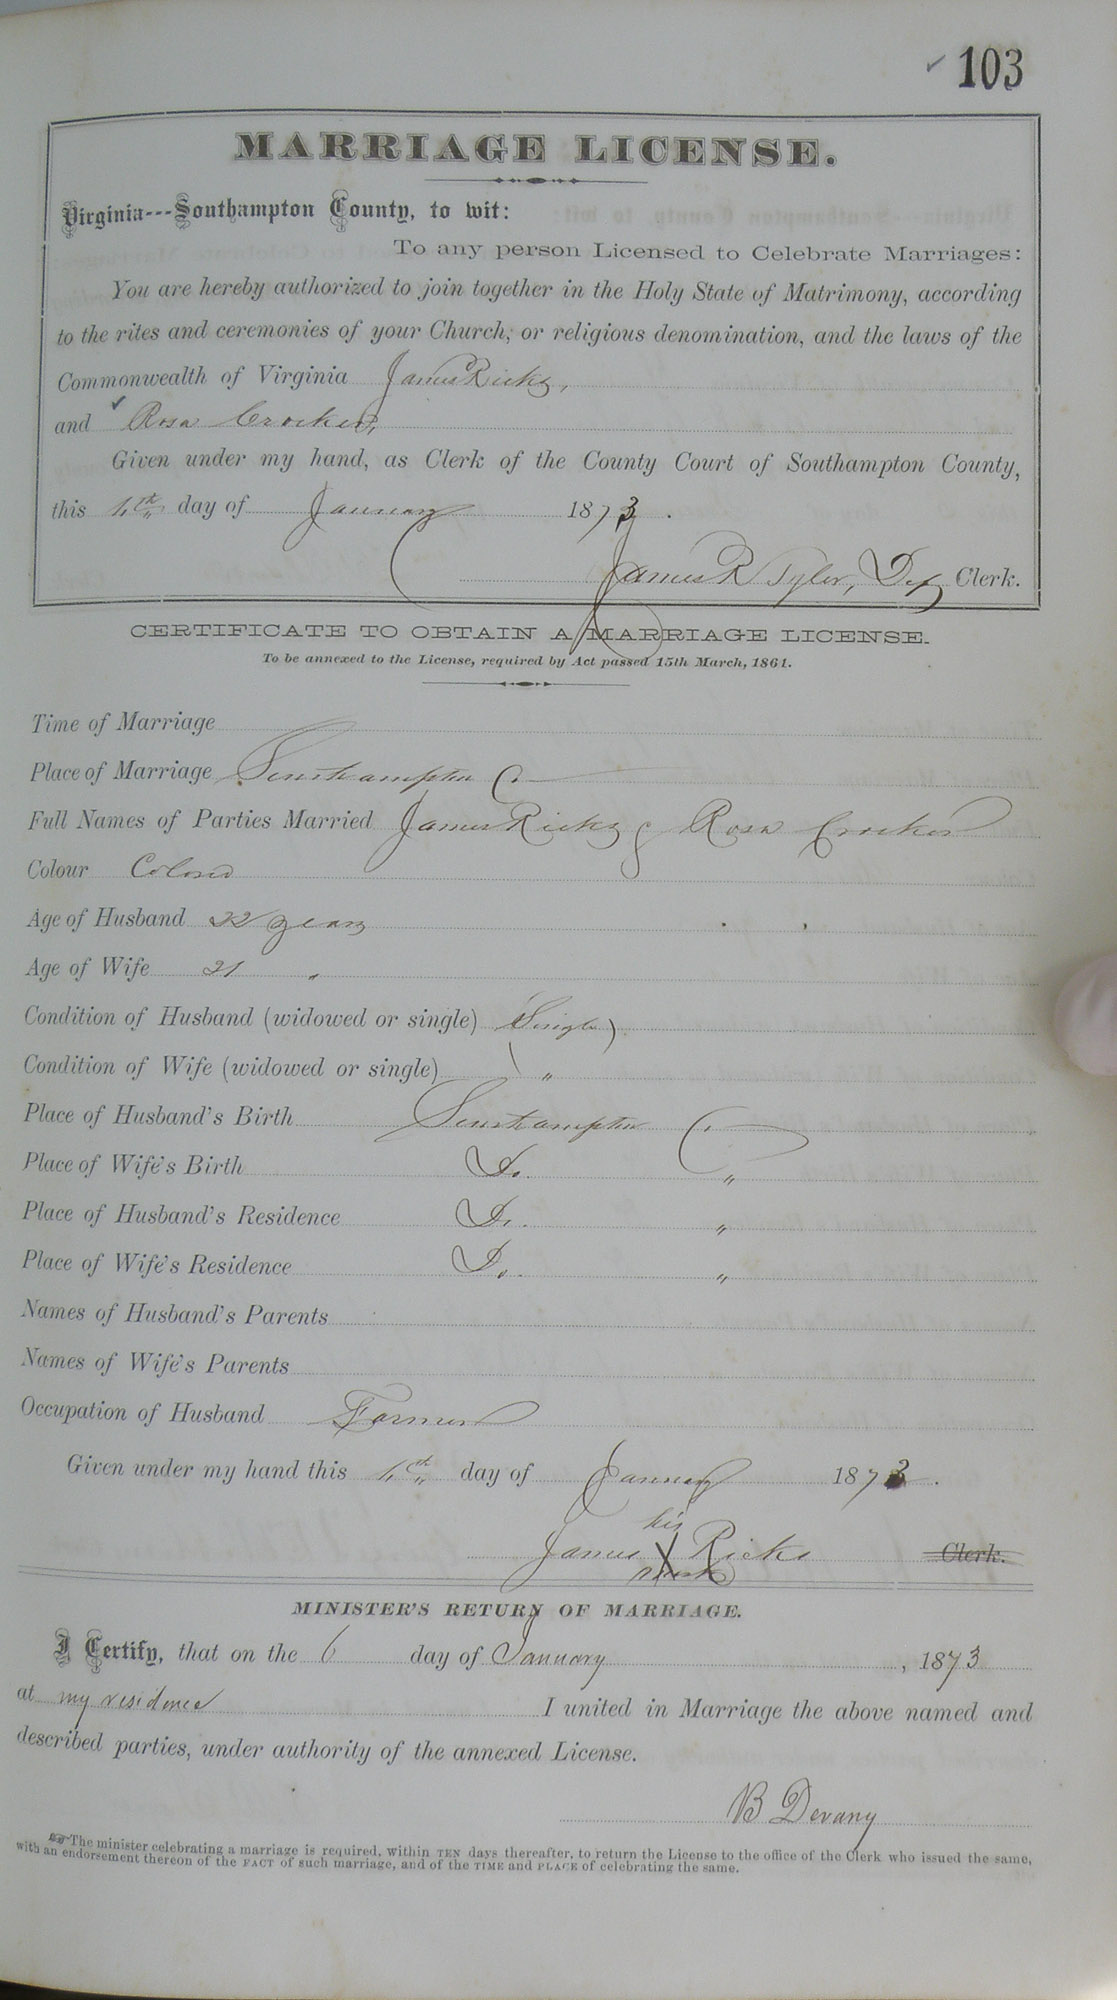 103
MARRIAGE LICENSE.
Virginia---Southampton County, to wit:
To any person Licensed to Celebrate Marriages:
You are hereby authorized to join together in the Holy State of Matrimony, according
to the rites and ceremonies of your Church, or religious denomination, and the laws of the
Commonwealth of Virginia James Ricks,
and Rosa Crocker,
Given under my hand, as Clerk of the County Court of Southampton County,
this 4th day of January 1873.
James R Tyler, Dep Clerk.
CERTIFICATE TO OBTAIN A MARRIAGE LICENSE.
To be annexed to the License, required by Act passed 15th March, 1861.
Time of Marriage
Place of Marriage Southampton Co
Full Names of Parties Married James Ricks & Rosa Crocker
Colour Colored
Age of Husband 22 years
Age of Wife 21 "
Condition of Husband (widowed or single) Single
Condition of Wife (widowed or single) "
Place of Husband's Birth Southampton Co
Place of Wife's Birth Do. "
Place of Husband's Residence Do. "
Place of Wife's Residence Do. "
Names of Husband's Parents
Names of Wife's Parents
Occupation of Husband Farmer
Given under my hand this 4th day of January 1873.
his
James X Ricks Clerk.
mark
MINISTER'S RETURN OF MARRIAGE.
I Certify, that on the 6 day of January, 1873
at my residence I united in Marriage the above named and
described parties, under authority of the annexed License.
B Devany
The minister celebrating a marriage is required, within TEN days thereafter, to return the License to the office of the Clerk who issued the same,
with an endorsement thereon of the FACT of such marriage, and of the TIME and PLACE of celebrating the same.